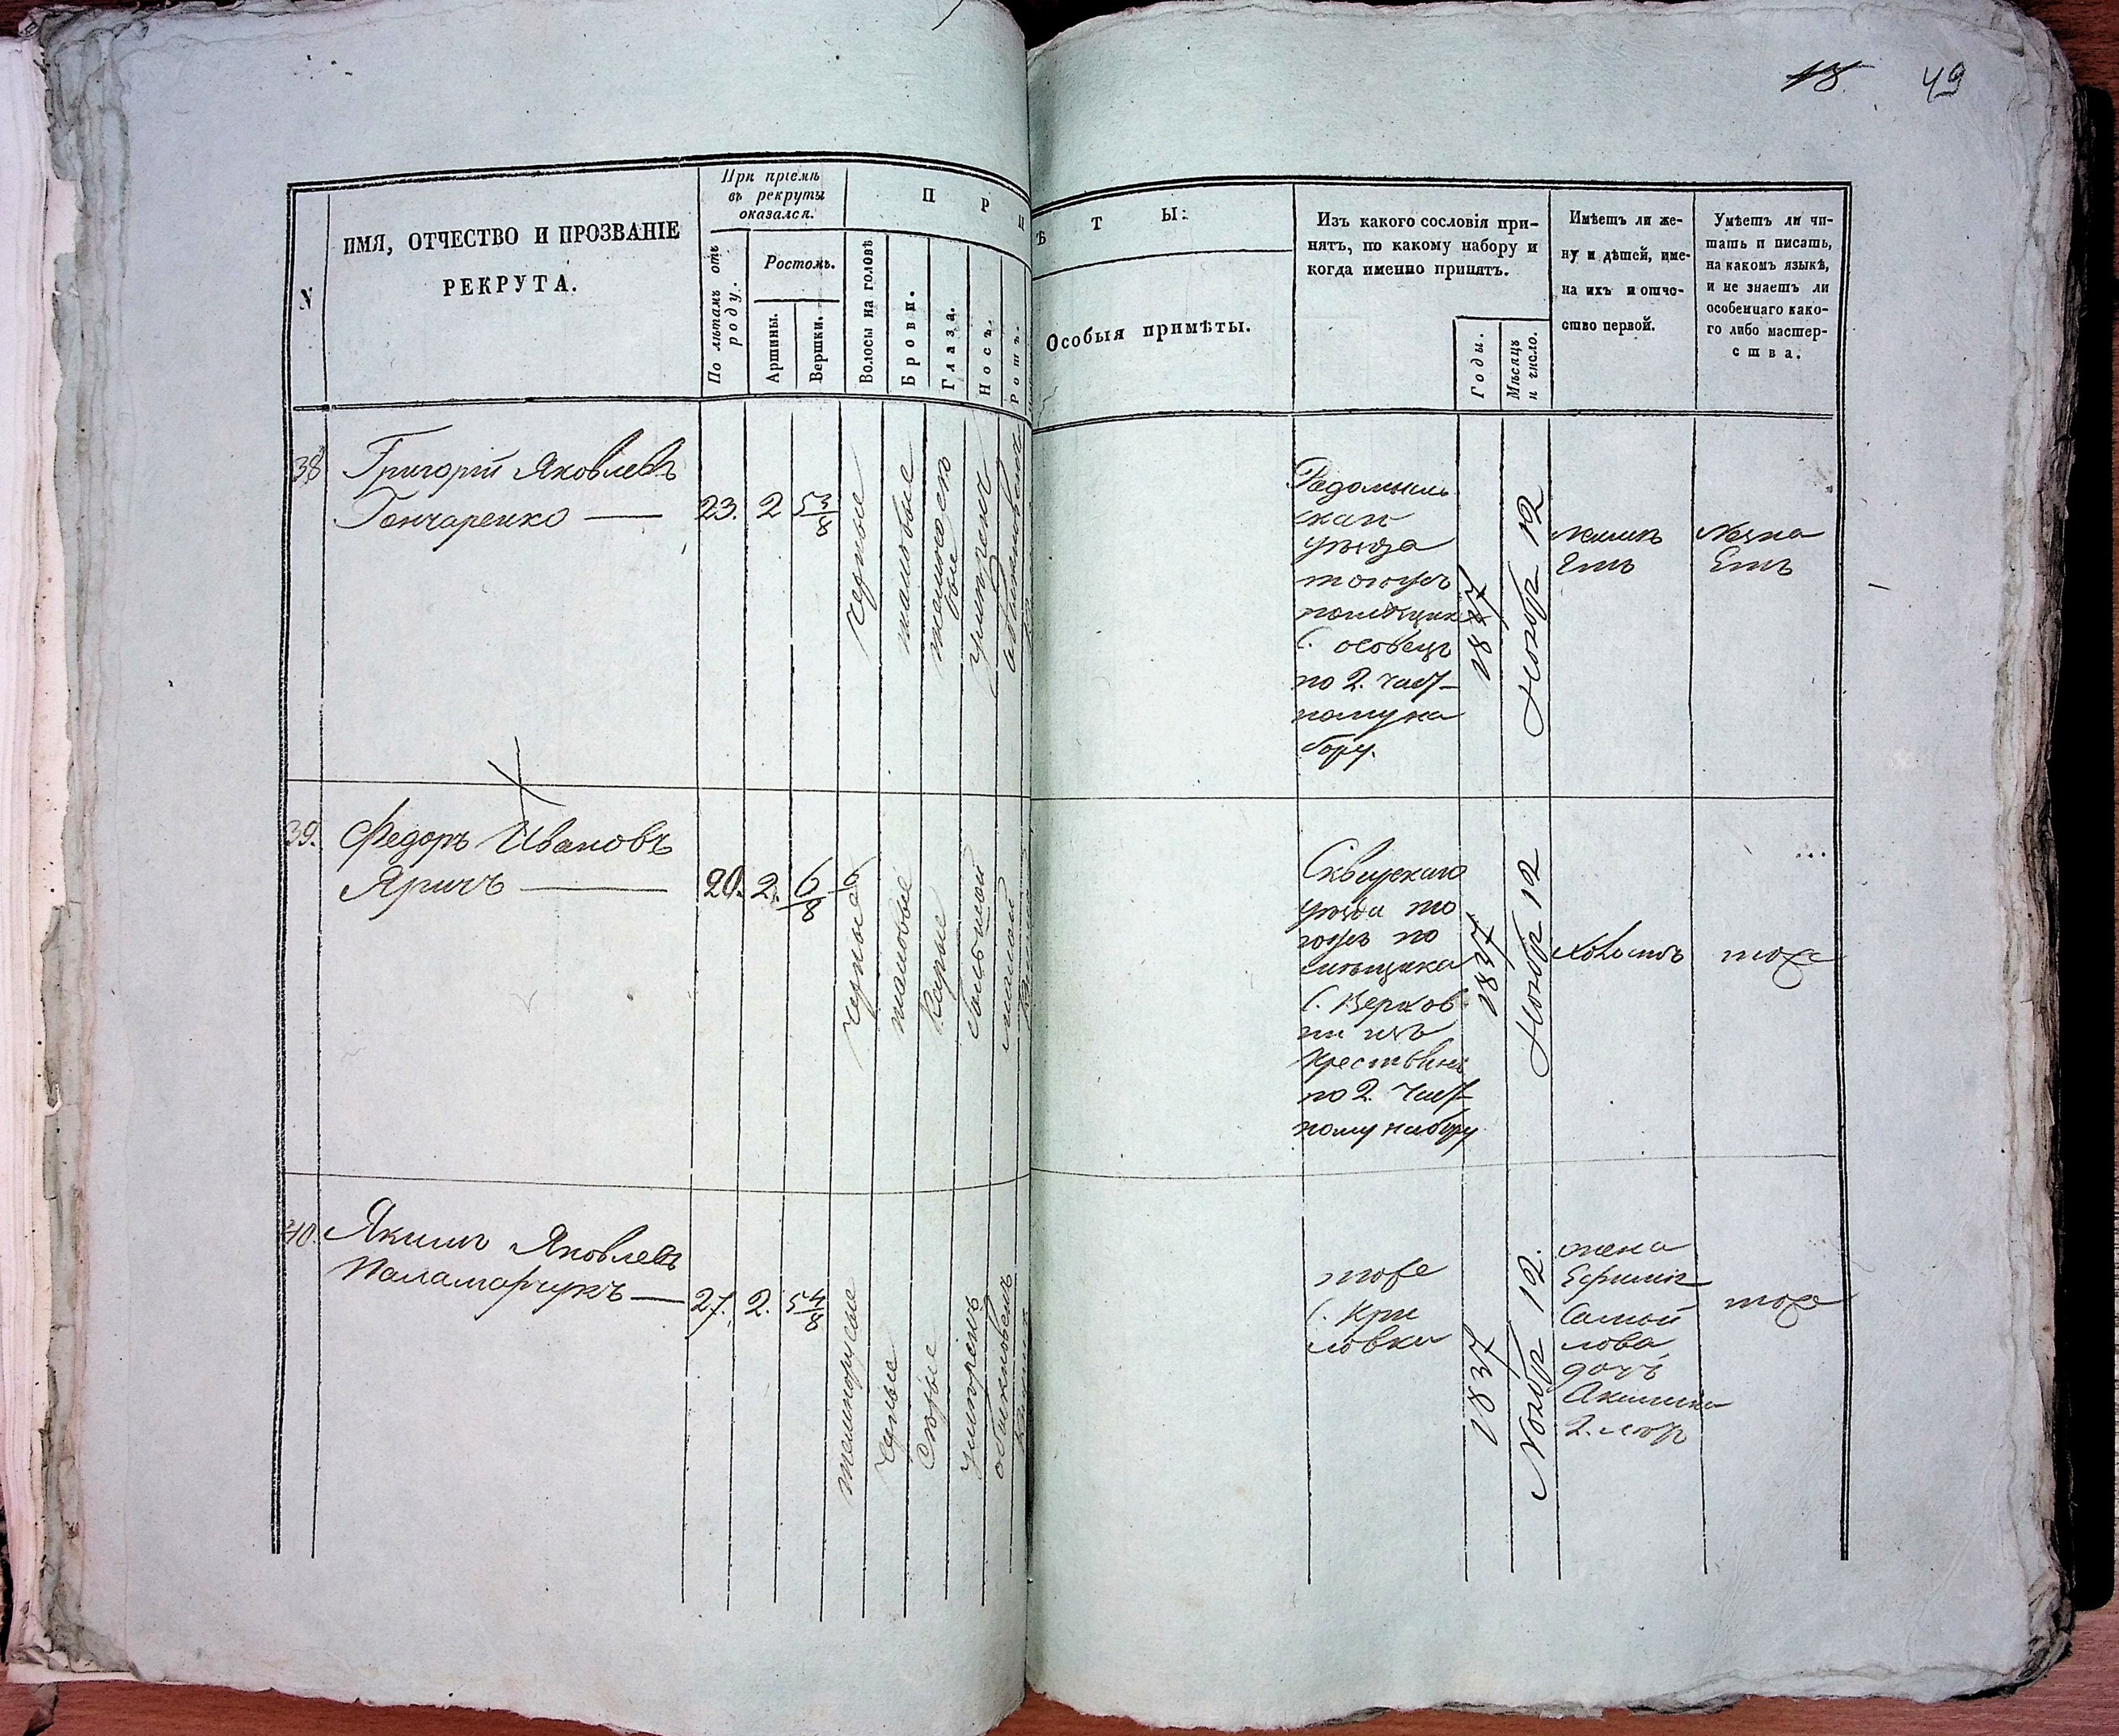 18. 49
N
ИМЯ, ОТЧЕСТВО И ПРОЗВАНІЕ
РЕКРУТА.
При пріемѣ
въ рекруты
оказался.
По лѣтамъ отъ
роду.
Ростомъ.
Аршины.
Вершки.
П Р И
Волосы на головѣ
Брови.
Глаза.
Носъ.
Ротъ.
Ѣ Т Ы:
Особыя примѣты.
Изъ какого сословія при-
нятъ, по какому набору и
когда именно принятъ.
Годы.
Мѣсяцъ
и число.
Имѣетъ ли же-
ну и дѣтей, име-
на ихъ и отче-
ство первой.
Умѣетъ ли чи-
тать и писать,
на какомъ языкѣ,
и не знаетъ ли
особеннаго како-
го либо мастер-
ства.
38
Григорій Яковлевъ
Гончаренко —
23. 2 5 3/8
черные
таковые
умѣрен
обыкновен
Радомысль
скаго
уѣзда
тогожъ
помѣщик
с. осовецъ
по 2. част-
ному на
бору.
1837
Ноябр 12
неимѣ
Етъ
Незна
Етъ
39.
Федоръ Ивановъ
Яричъ —
20. 2. 6 6/8
черные
таковые
Карые
большой
малый
Сквирскаго
уѣзда то
гожъ по
мѣщика
с. Верхов
ни изъ
Крестьянъ
по 2. част-
ному набору
1837
Ноябр 12
Холостъ
тоже
40.
Якимъ Яковлевъ
Паламарчукъ —
27. 2. 5 4/8
темнорусые
черные
Сѣрые
умѣренъ
обыкновенъ
тоже
с. Кри
ловки
1837
Ноябр 12.
жена
Ефимія
Самой
лова
дочь
Акилина
тоже